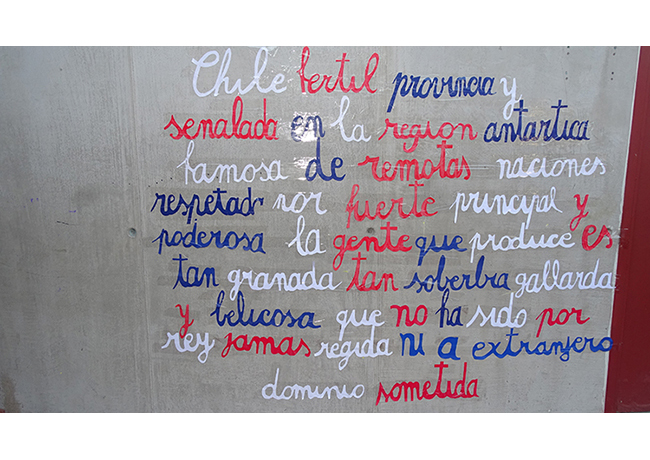 Chile fertil provincia y
senalada en la region antartica
famosa de remotas naciones
respetado por fuerte principal y
poderosa la gente que produce es
tan granada tan soberbia gallarda
y belicosa que no ha sido por
rey jamas regida ni a extranjero
dominio sometida